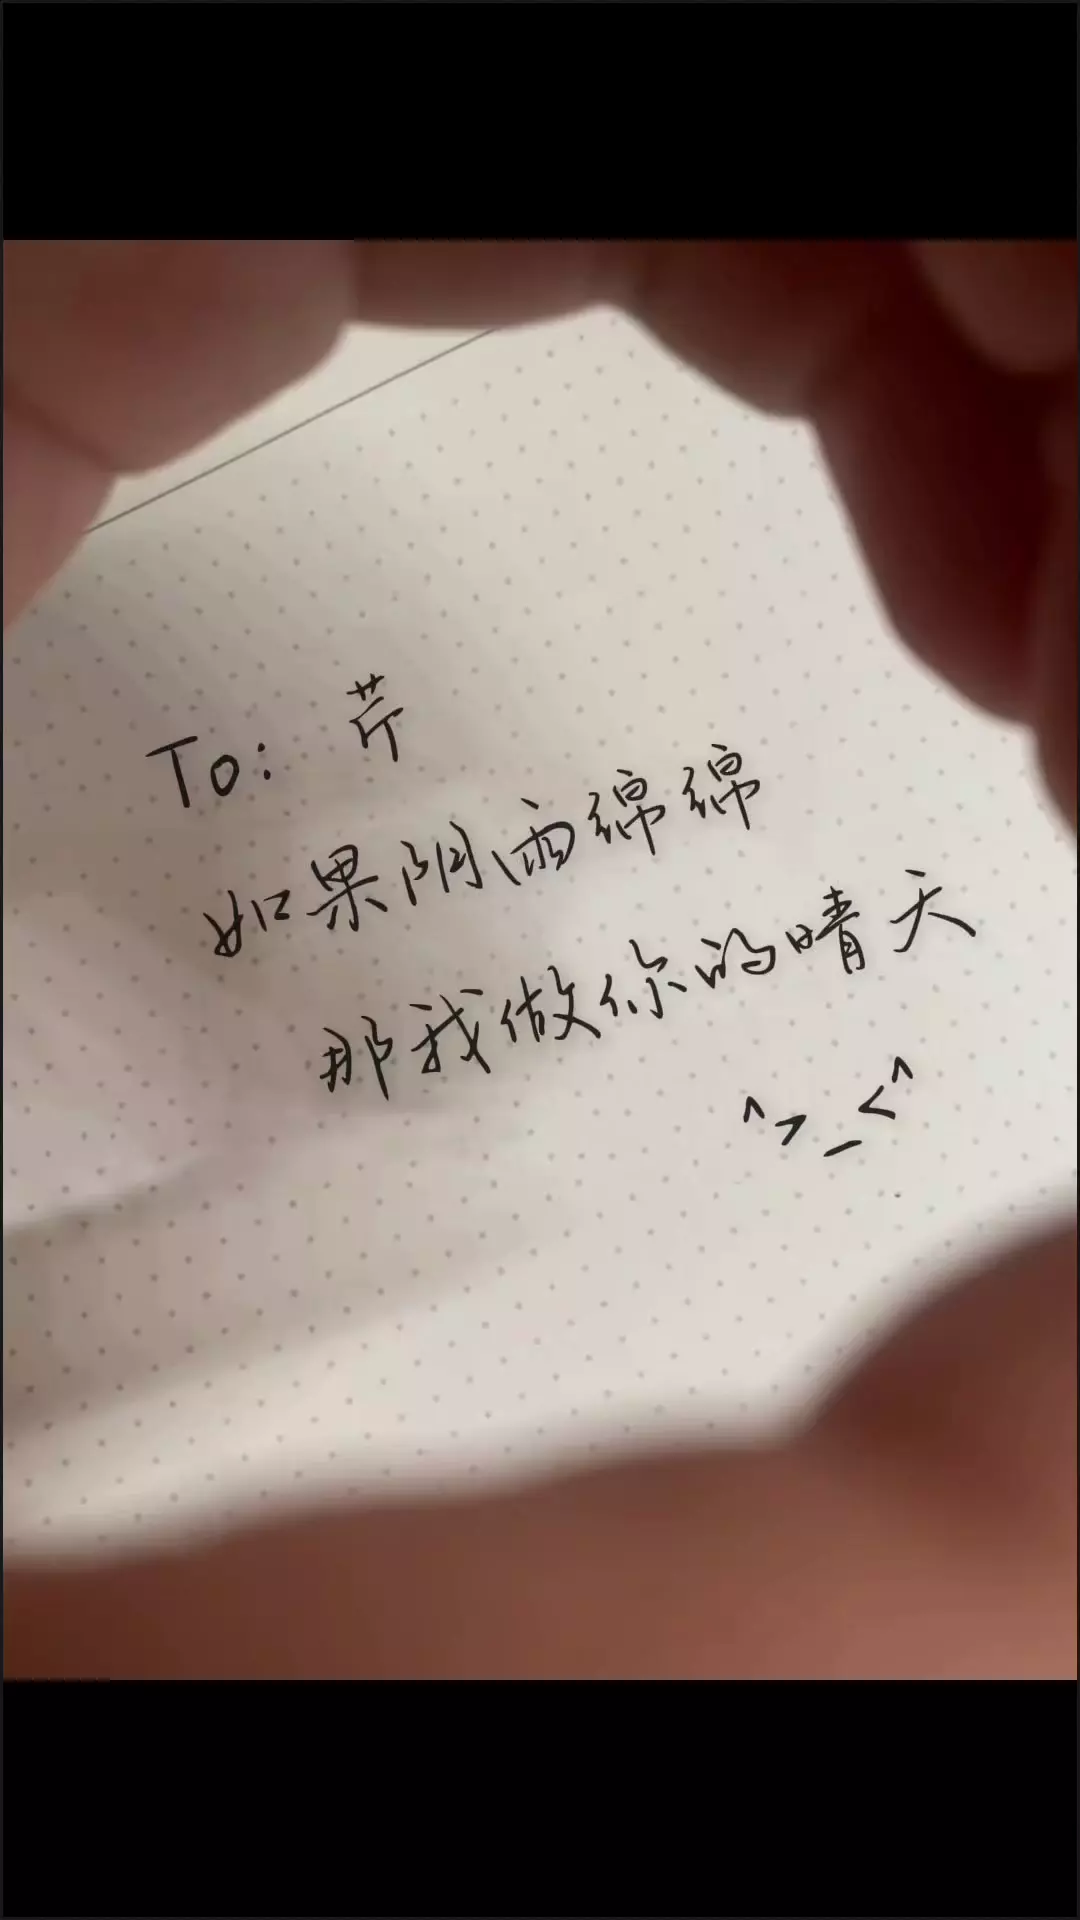 To: 芹
如果阴雨绵绵
那我做你的晴天
^>_<^